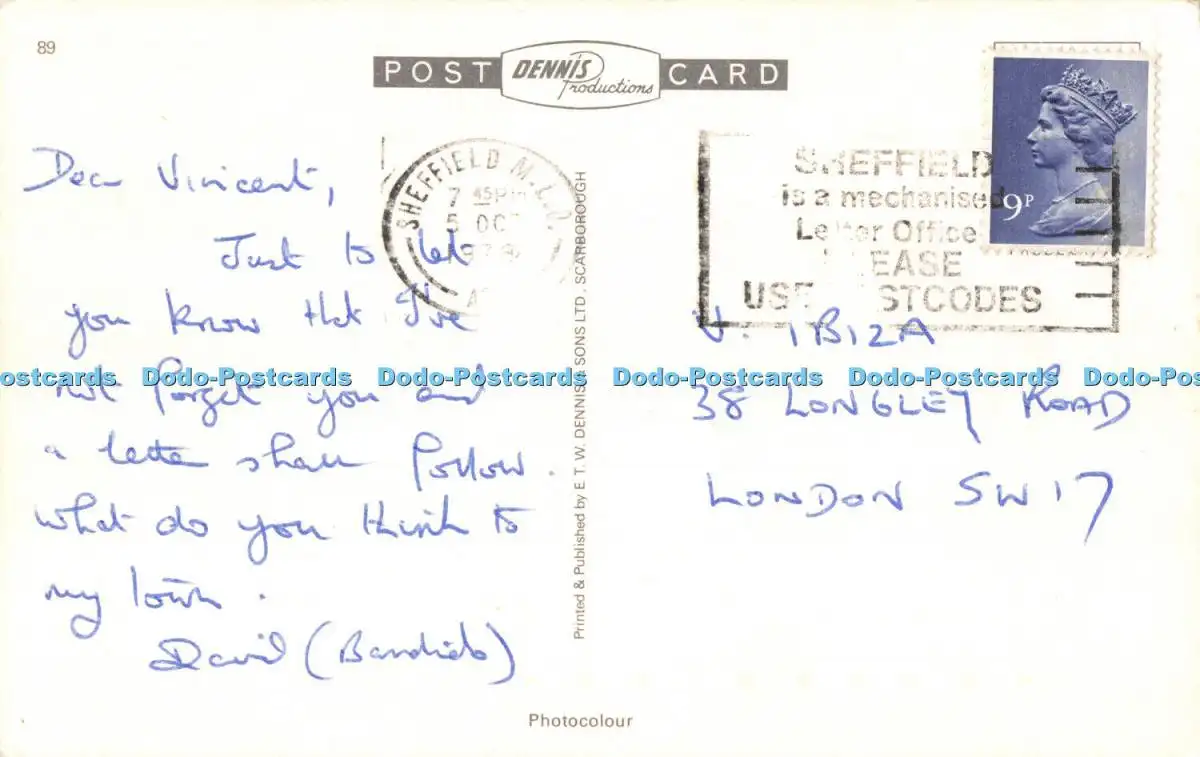 89
POST DENNIS Productions CARD
SHEFFIELD M.L.O.
7 45PM
5 OC
SHEFFIELD
is a mechanised
Letter Office
EASE
USE STCODES
9P
Dear Vincent,
Just to let
you know that I've
not forget you and
a letter shall follow.
What do you think to
my town.
David (Bandido)
V. IBIZA
38 LONGLEY ROAD
LONDON SW17
Printed & Published by E. T. W. DENNIS & SONS LTD., SCARBOROUGH
Photocolour
ostcards Dodo-Postcards Dodo-Postcards Dodo-Postcards Dodo-Postcards Dodo-Pos